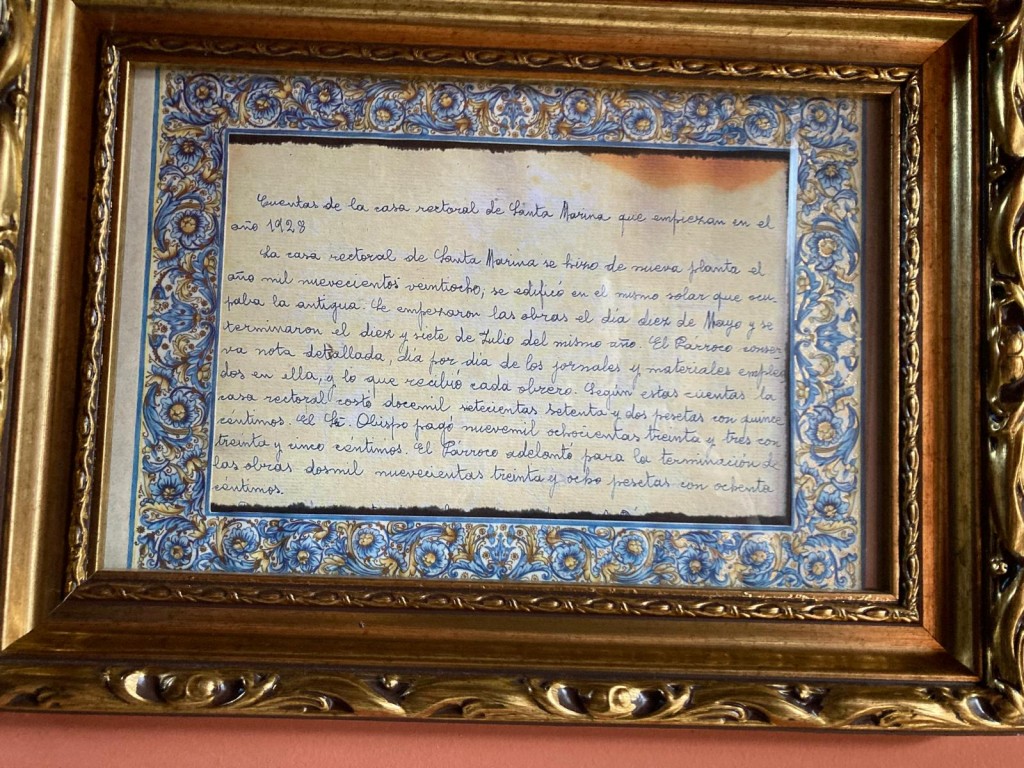 Cuentas de la casa rectoral de Santa Marina que empiezan en el
año 1928
La casa rectoral de Santa Marina se hizo de nueva planta el
año mil nuevecientos veintiocho, se edificó en el mismo solar que ocu-
paba la antigua. Se empezaron las obras el día diez de Mayo y se
terminaron el diez y siete de Julio del mismo año. El Párroco conser
va nota detallada, día por día de los jornales y materiales emplea
dos en ella, y lo que recibió cada obrero. Según estas cuentas la
casa rectoral costó docemil setecientas setenta y dos pesetas con quince
céntimos. El Sr. Obispo pagó nuevemil ochocientas treinta y tres con
treinta y cinco céntimos. El Párroco adelantó para la terminación de
las obras dosmil nuevecientas treinta y ocho pesetas con ochenta
céntimos.